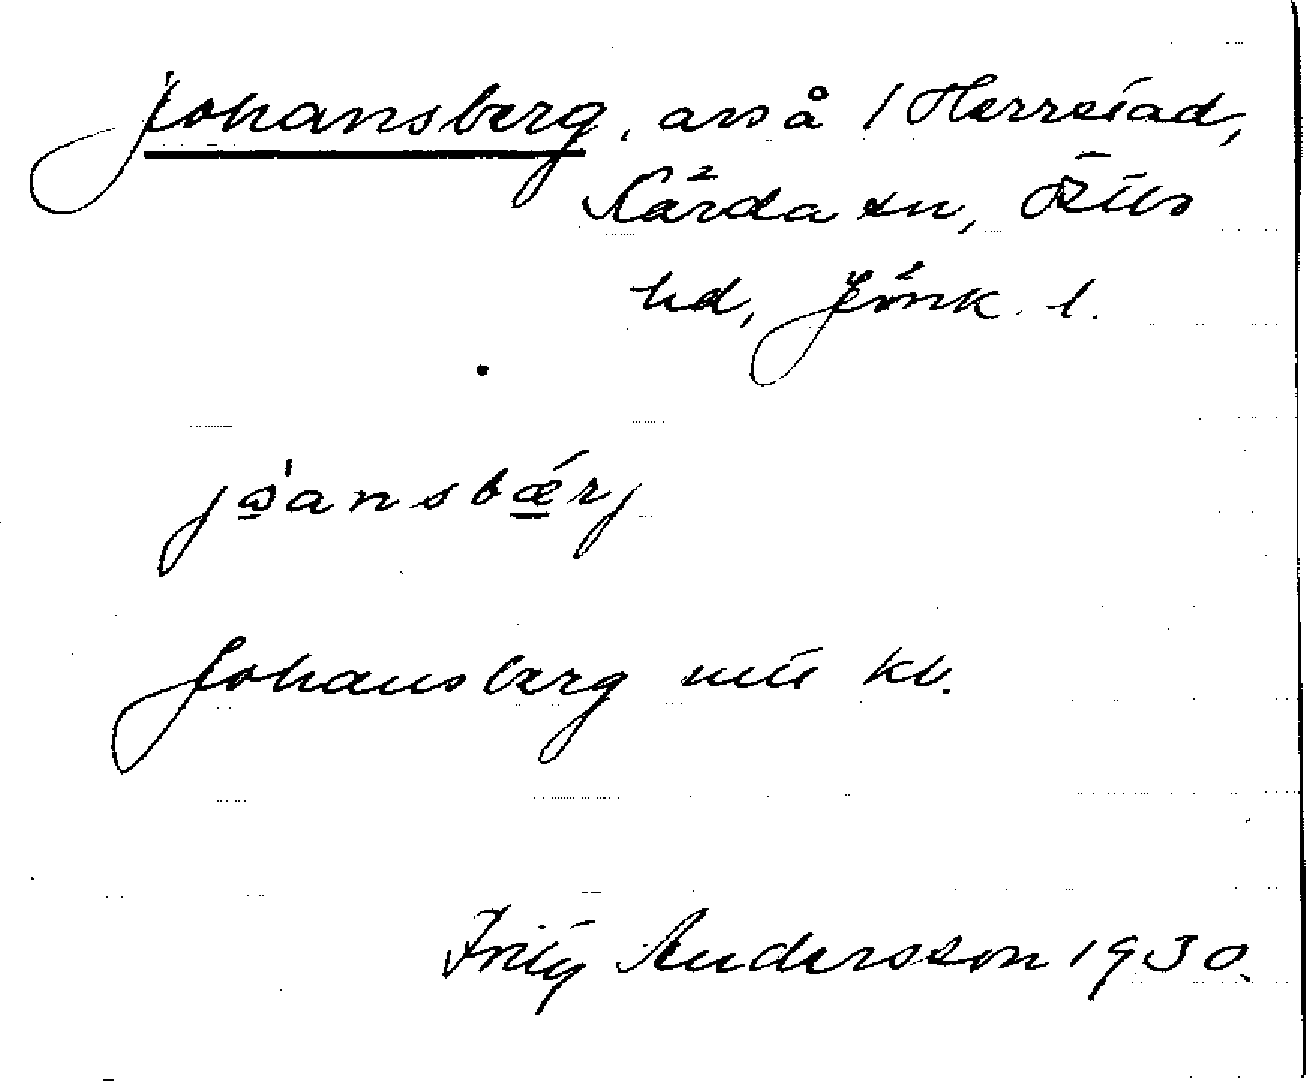 Johansberg, avs å / Herrestad,
Kärda sn, Östbo
hd, Jönk. l.
jo'ansbærj
Johansberg utt kv.
Fritz Andersson 1930.